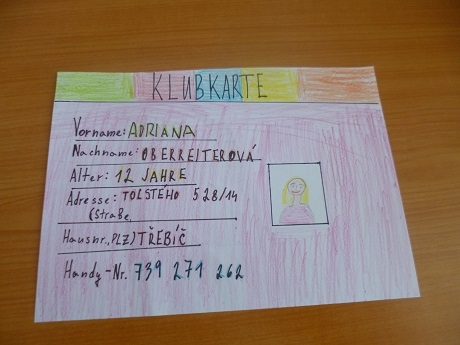 KLUBKARTE
Vorname: ADRIANA
Nachname: OBERREITEROVÁ
Alter: 12 JAHRE
Adresse: TOLSTÉHO 528/14
(Straße,
Hausnr., PLZ) TŘEBÍČ
Handy-Nr. 739 271 262